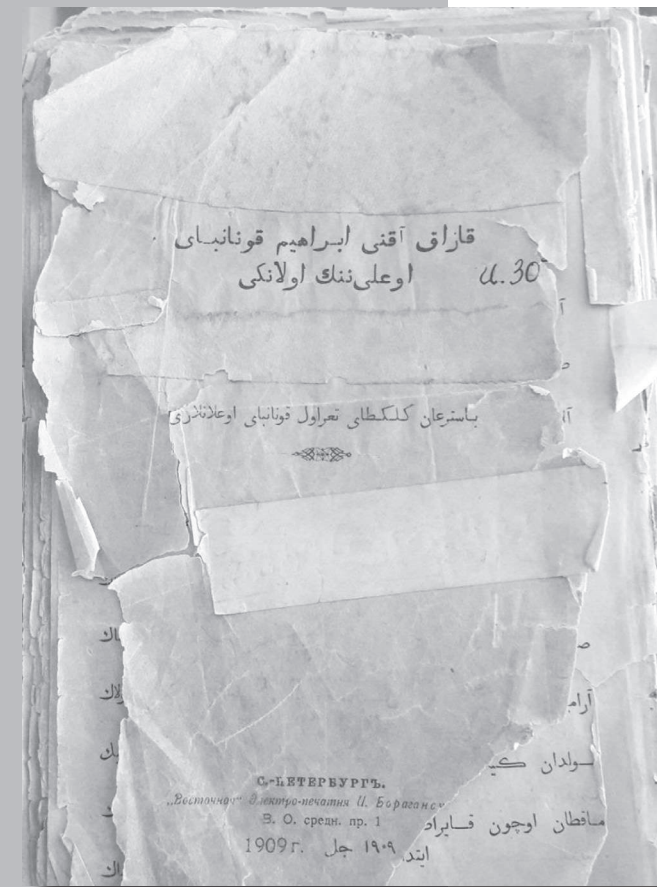 قازاق آقنی ابراهیم قونانبای
اوعلی‌ننك اولانكی И. 30
باسترعان كلكطای تعراول قونانبای اوعلانلاری
С.-ПЕТЕРБУРГЪ.
„Восточная“ Электро-печатня И. Бораганс
В. О. средн. пр. 1
1909 г. ١٩٠٩ جل
سولدان
مافطان اوچون